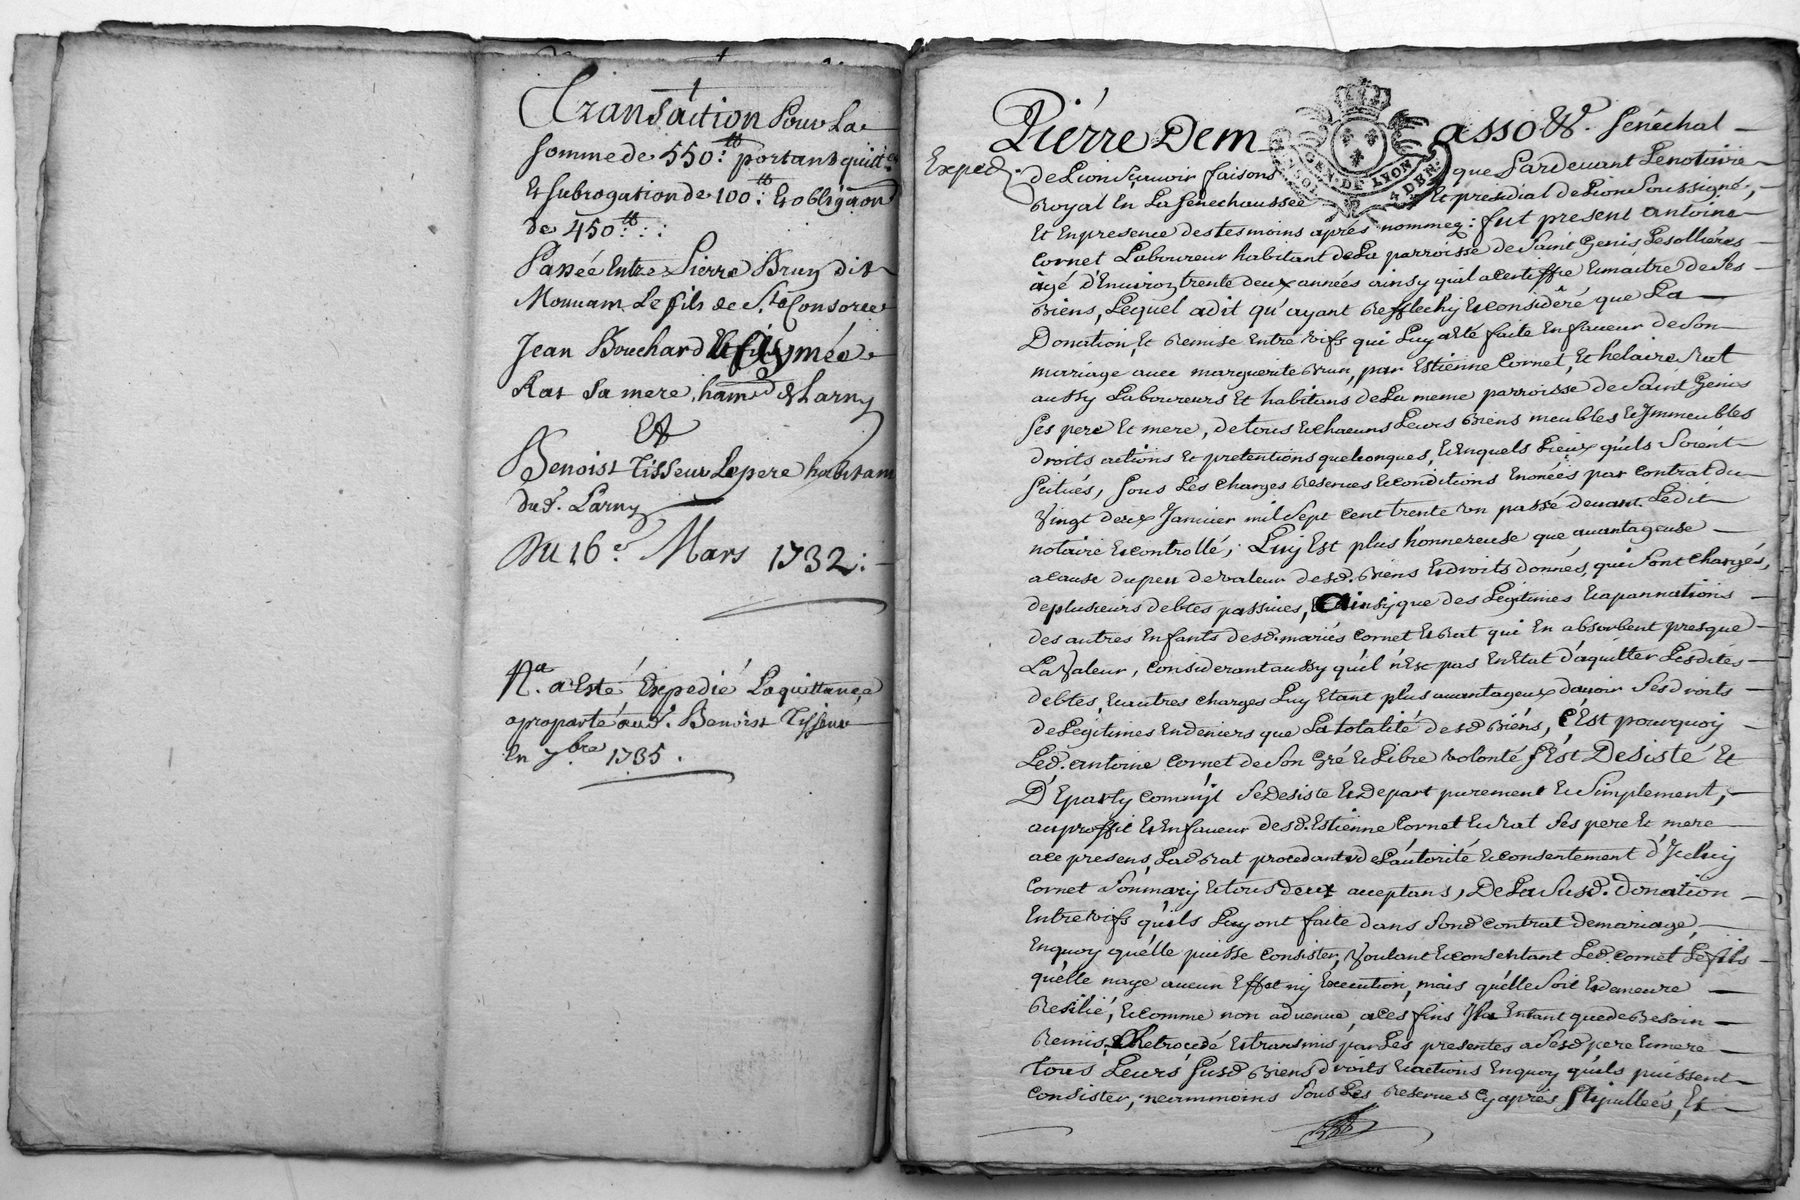 Transaction Pour La
somme de 550.# portant quitt.ce
Et subrogation de 100.# Et obligaon
de 450.#.:
Passée Entre Pierre Brun dit
Le fils de S.te Consorce
Jean Bouchard Et aymée
Rat Sa mere, Larny
Et
Benoist Tisseur Le pere habitant
dud. Larny
Du 16.e Mars 1732:
N.a a Esté Expedié La quittance
a proparté aud. Benoist Tisseur
En 7.bre 1735.
Pierre Dem asso &. Senéchal
Exped.
GEN. DE LYON
4 DEN.
de Lion Scavoir faisons que Pardevant Le notaire
Royal En La Senéchaussée Et présidial de Lion Soussigné,
Et En presence des tesmoins aprés nommez: fut present antoine
Cornet Laboureur habitant de La parroisse de Saint Genis Les ollières
agé d'Environ trente deux années ainsy quil a certiffie Et maitre de Ses
Biens, Lequel a dit qu'ayant Refflechy Et considéré que La
Donation, Et Remise Entre vifs qui Luy a été faite En faveur de Son
mariage avec marguerite Brun, par Estienne Cornet, Et helaire Rat
aussy Laboureurs Et habitans de La meme parroisse de Saint Genis
Ses pere Et mere, de tous Et chacuns Leurs Biens meubles Et Immeubles
droits actions Et pretentions quelconques, Et En quels Lieux quils Soient
Scitués, Sous Les charges Reserves Et conditions Enoncées par contrat du
Vingt deux Janvier mil Sept cent trente un passé devant Ledit
notaire Et controllé; Luy Est plus honnereuse que avantageuse
a cause du peu de valeur desd. Biens Et droits donnés, qui Sont chargés,
de plusieurs debtes passives, ainsy que des Légitimes Et apannations
des autres Enfants desd. mariés Cornet Et Rat qui En absorbent presque
La Valeur, considerant aussy quil n'Est pas En Etat d'aquitter Lesdites
debtes, Et autres charges Luy Etant plus avantageux davoir Ses droits
de Légitimes En deniers que La totalité desd Biens, c'Est pourquoy
Led. antoine Cornet de Son gré Et Libre volonté S'Est Desisté Et
D'Eparty comm'jl Se Desiste Et Depart purement Et Simplement,
au proffit Et En faveur desd. Estienne Cornet Et Rat Ses pere Et mere
a ce presens, Lad Rat procedant de L'autorité Et consentement d'Jceluy
Cornet Son mary Et tous deux acceptans, De La Susd. donation
Entre vifs qu'ils Luy ont faite dans Sond contrat de mariage,
En quoy qu'elle puisse consister, Voulant Et consentant Led. Cornet Le fils
qu'elle naye aucun Effet ny Execution, mais qu'elle Soit Et demeure
Resilié, Et comme non advenue, a ces fins Jl a Entant que de Besoin
Remis, Retrocedé Et transmis par Les presentes a Sesd pere Et mere
tous Leurs Susd Biens droits Et actions En quoy qu'ils puissent
consister, neammoins Sous Les Reserves cy aprés Stipullées, Et